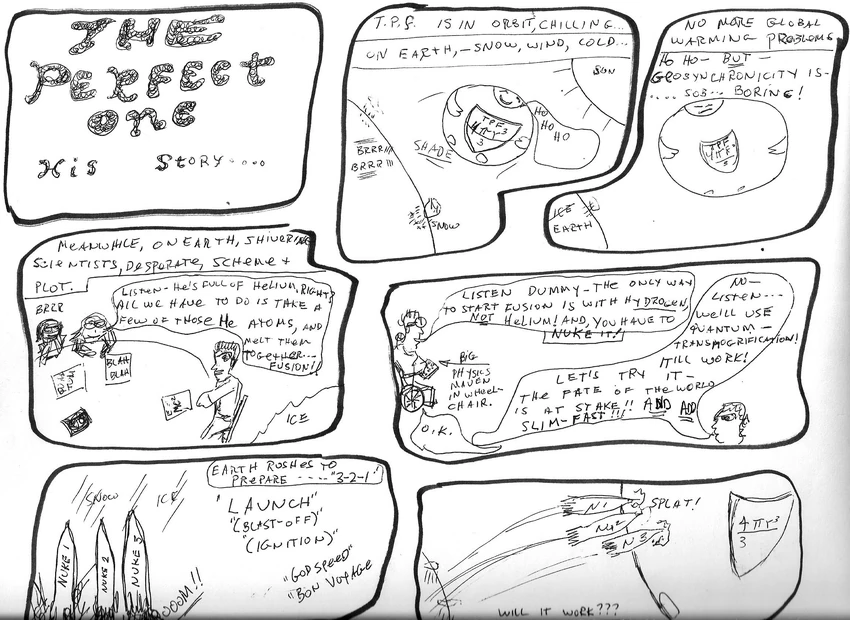 THE
PERFECT
ONE
His Story....
T.P.F. IS IN ORBIT, CHILLING...
ON EARTH, - SNOW, WIND, COLD...
SUN
TPF
4πr³
3
HO
HO
HO
SHADE
BRRR!!!
BRRR!!!
SNOW
NO MORE GLOBAL
WARMING PROBLEMS
HO HO - BUT -
GEOSYNCHRONICITY IS-
.... SOB... BORING!
TPF
4πr³
3
ICE
EARTH
MEANWHILE, ON EARTH, SHIVERING
SCIENTISTS, DESPARATE, SCHEME +
PLOT.
LISTEN - HE'S FULL OF HELIUM, RIGHT?
ALL WE HAVE TO DO IS TAKE A
FEW OF THOSE He ATOMS, AND
MELT THEM
TOGETHER...
FUSION!!
BRRR
BLAH
BLAH
BLAH
BLAH
ICE
LISTEN DUMMY - THE ONLY WAY
TO START FUSION IS WITH HYDROGEN,
NOT HELIUM! AND, YOU HAVE TO
NUKE IT!
BIG
PHYSICS
MAVEN
IN WHEEL-
CHAIR.
NO -
LISTEN---
WE'LL USE
QUANTUM -
TRANSMOGRIFICATION!
IT'LL WORK!
LET'S TRY IT -
THE FATE OF THE WORLD
IS AT STAKE!! AND ADD
SLIM-FAST!!!
O.K.
EARTH RUSHES TO
PREPARE ---- "3-2-1"
SNOW
ICE
"LAUNCH"
"(BLAST-OFF)"
"(IGNITION)"
"GODSPEED"
"BON VOYAGE
NUKE 1
NUKE 2
NUKE 3
OOOM!!
N1
N2
N3
SPLAT!
4πr³
3
WILL IT WORK???